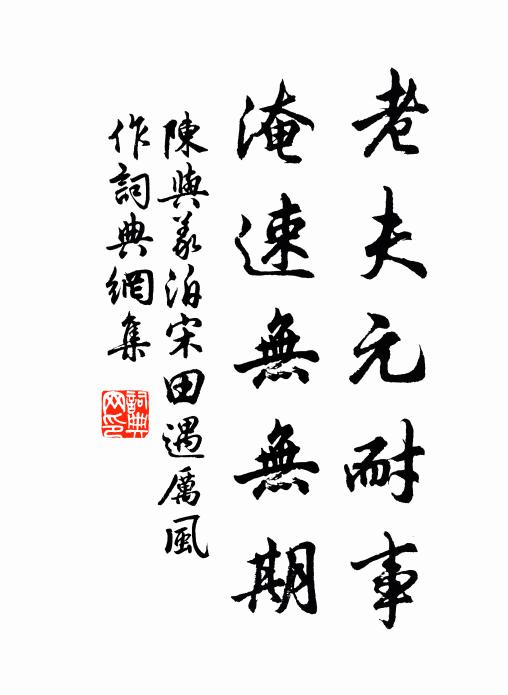 老夫元耐事
淹速無無期
陳與義泊宋田遇厲風
作詞典網集
詞典網印